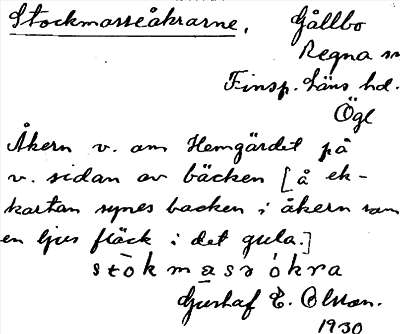 Stockmosseåkrarne. Gållbo
Regna sn
Finsp. läns hd.
Ögl
Åkern v. om Hemgärdet på
v. sidan av bäcken [å ek-
kartan synes backen i åkern som
en ljus fläck i det gula.]
stòkmasaókra
Gustaf E. Olsson.
1930